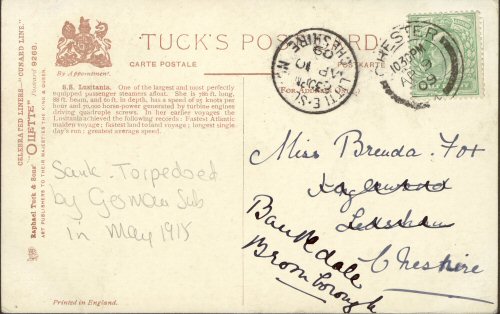 CELEBRATED LINERS—"CUNARD LINE"
"OILETTE" Postcard 9268.
Raphael Tuck & Sons'
ART PUBLISHERS TO THEIR MAJESTIES THE KING
By Appointment.
TUCK'S POST CARD
CARTE POSTALE
S.S. Lusitania. One of the largest and most perfectly
equipped passenger steamers afloat. She is 786 ft. long,
88 ft. beam, and 60 ft. in depth, has a speed of 25 knots per
hour and 70,000 horse-power generated by turbine engines
driving quadruple screws. In her earlier voyages the
Lusitania achieved the following records: Fastest Atlantic
maiden voyage; fastest home and voyage; longest single
day's run; greatest average speed.
Sunk. Torpedoed
by German Sub
in May 1915
Printed in England.
CHESHIRE
AP 10
09
CHESTER
10.30PM
AP 9
09
Miss Brenda Fox
Inglewood
Ledsham
Cheshire
Bromborough